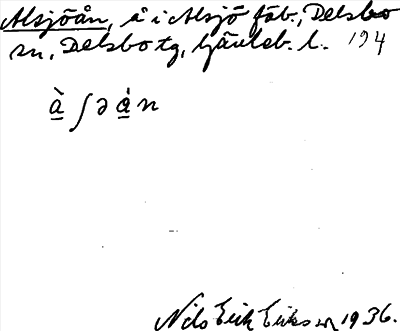 Alsjöån, å i Alsjö fäb., Delsbo
sn, Delsbo tg, Gävleb. l. 194
à̱ ʃ ə á̱ n
Nils Erik Eriksson 1936.